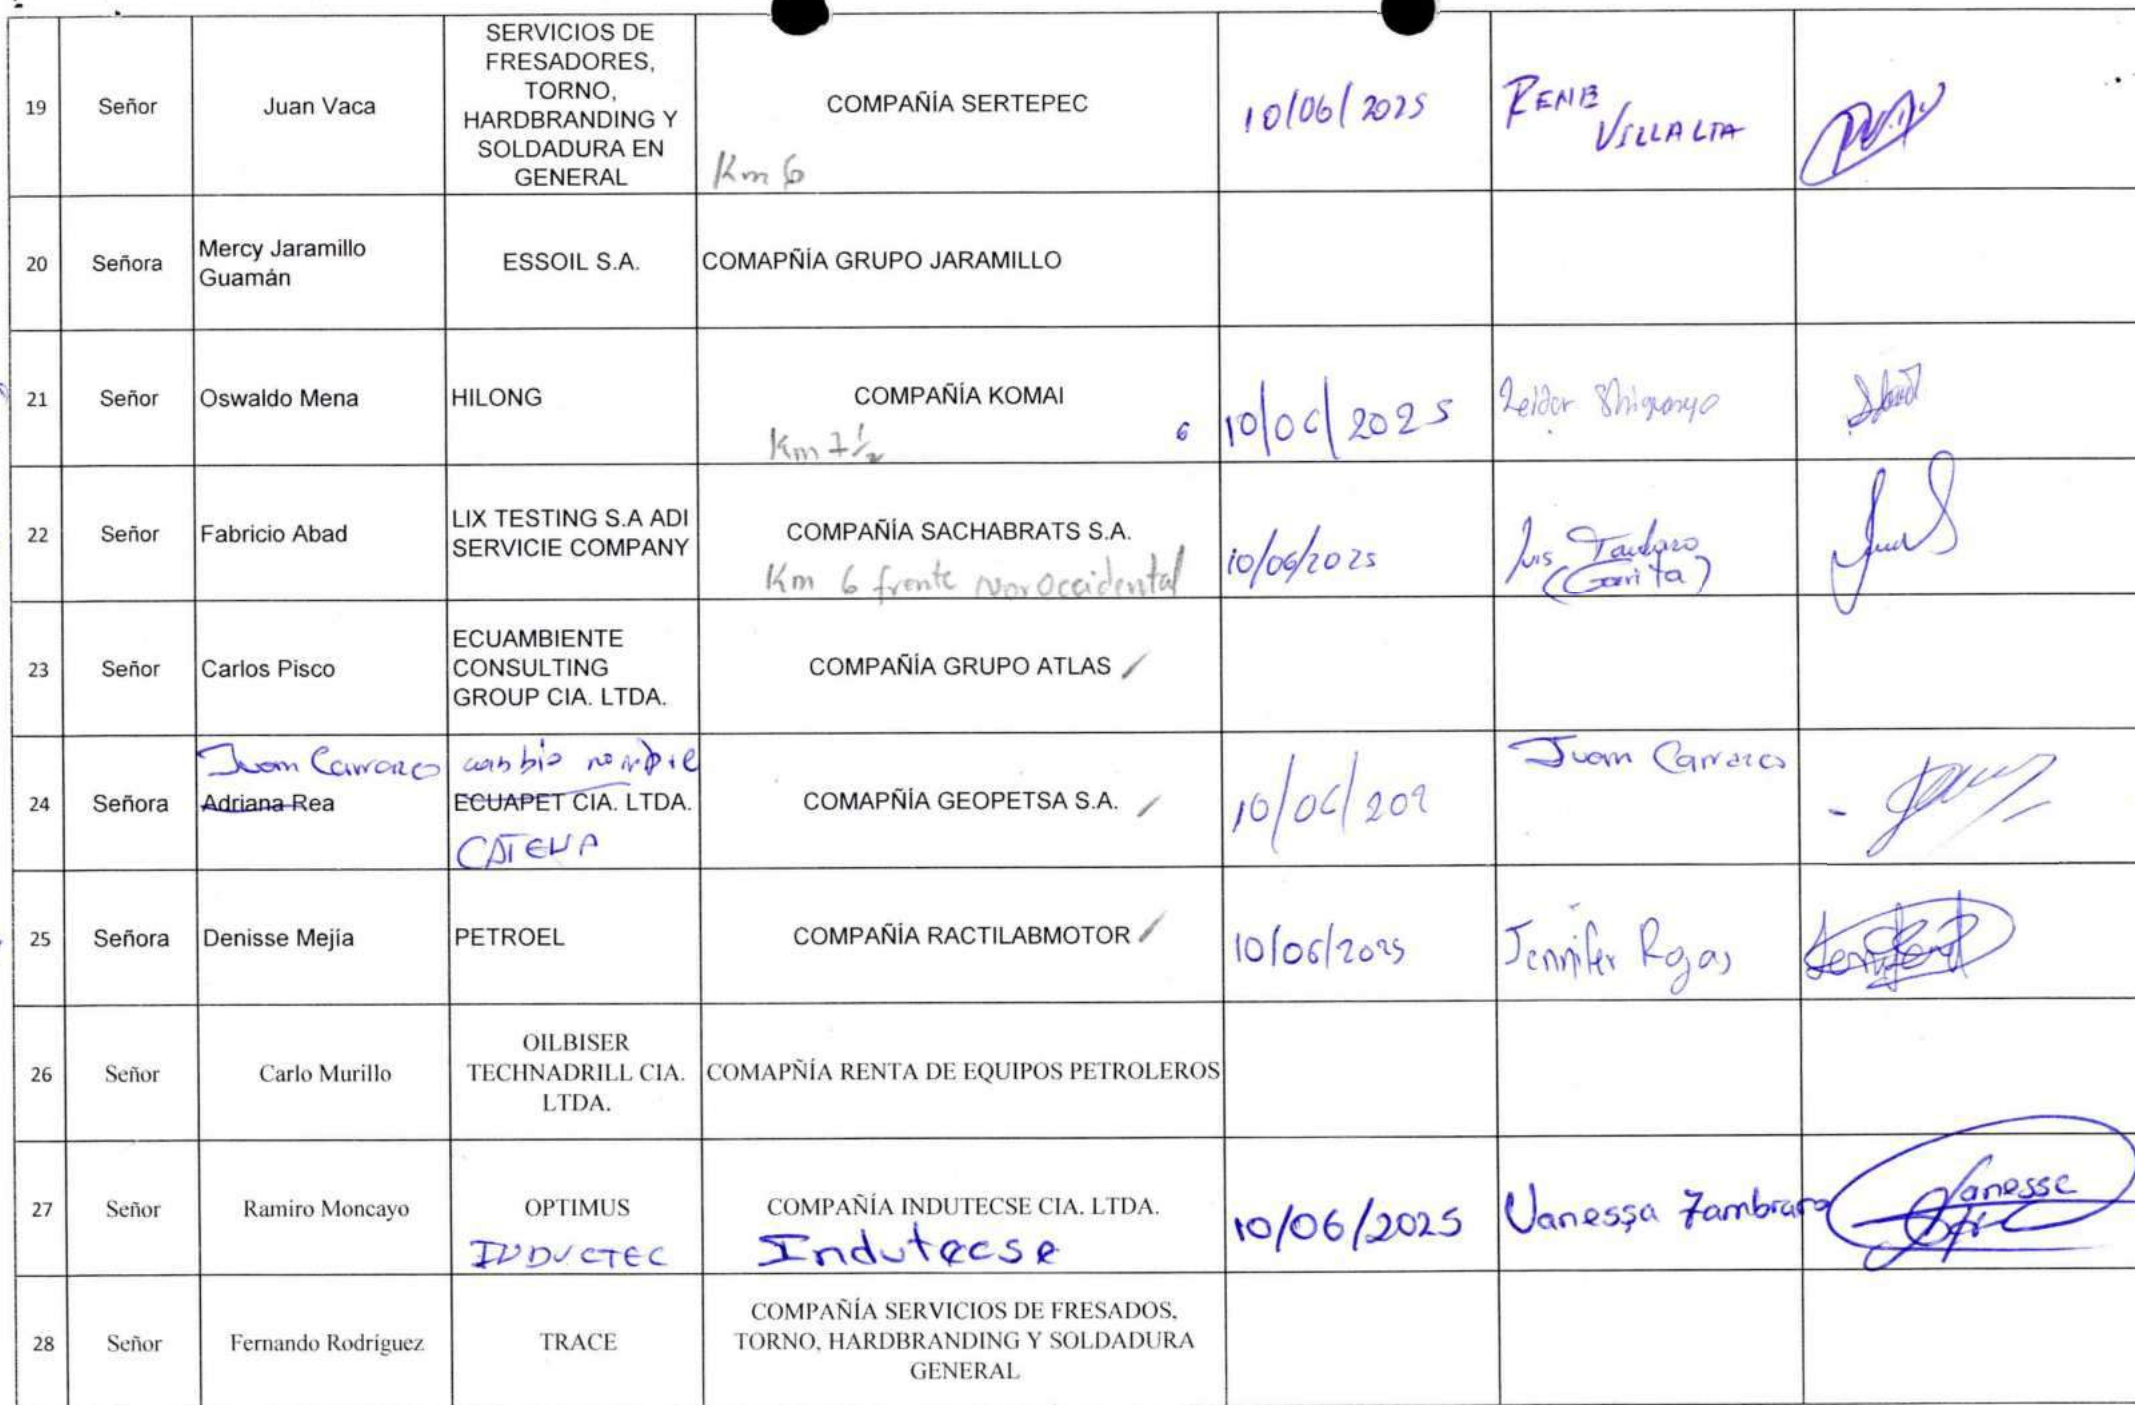 19 Señor Juan Vaca SERVICIOS DE FRESADORES, TORNO, HARDBRANDING Y SOLDADURA EN GENERAL COMPAÑÍA SERTEPEC Km 6 10/06/2025 RENE VILLALTA
20 Señora Mercy Jaramillo Guamán ESSOIL S.A. COMAPÑÍA GRUPO JARAMILLO
21 Señor Oswaldo Mena HILONG COMPAÑÍA KOMAI Km 7 1/2 6 10/06/2025
22 Señor Fabricio Abad LIX TESTING S.A ADI SERVICIE COMPANY COMPAÑÍA SACHABRATS S.A. Km 6 frente Noroccidental 10/06/2025 Luis (Garita)
23 Señor Carlos Pisco ECUAMBIENTE CONSULTING GROUP CIA. LTDA. COMPAÑÍA GRUPO ATLAS
24 Señora Juan Adriana Rea cambio nombre ECUAPET CIA. LTDA. COMAPÑÍA GEOPETSA S.A. 10/06/202 Juan
25 Señora Denisse Mejía PETROEL COMPAÑÍA RACTILABMOTOR 10/06/2025 Jennifer Rojas
26 Señor Carlo Murillo OILBISER TECHNADRILL CIA. LTDA. COMAPÑÍA RENTA DE EQUIPOS PETROLEROS
27 Señor Ramiro Moncayo OPTIMUS INDUCTEC COMPAÑÍA INDUTECSE CIA. LTDA. Indutecse 10/06/2025 Vanessa Zambrano Vanesse
28 Señor Fernando Rodríguez TRACE COMPAÑÍA SERVICIOS DE FRESADOS, TORNO, HARDBRANDING Y SOLDADURA GENERAL